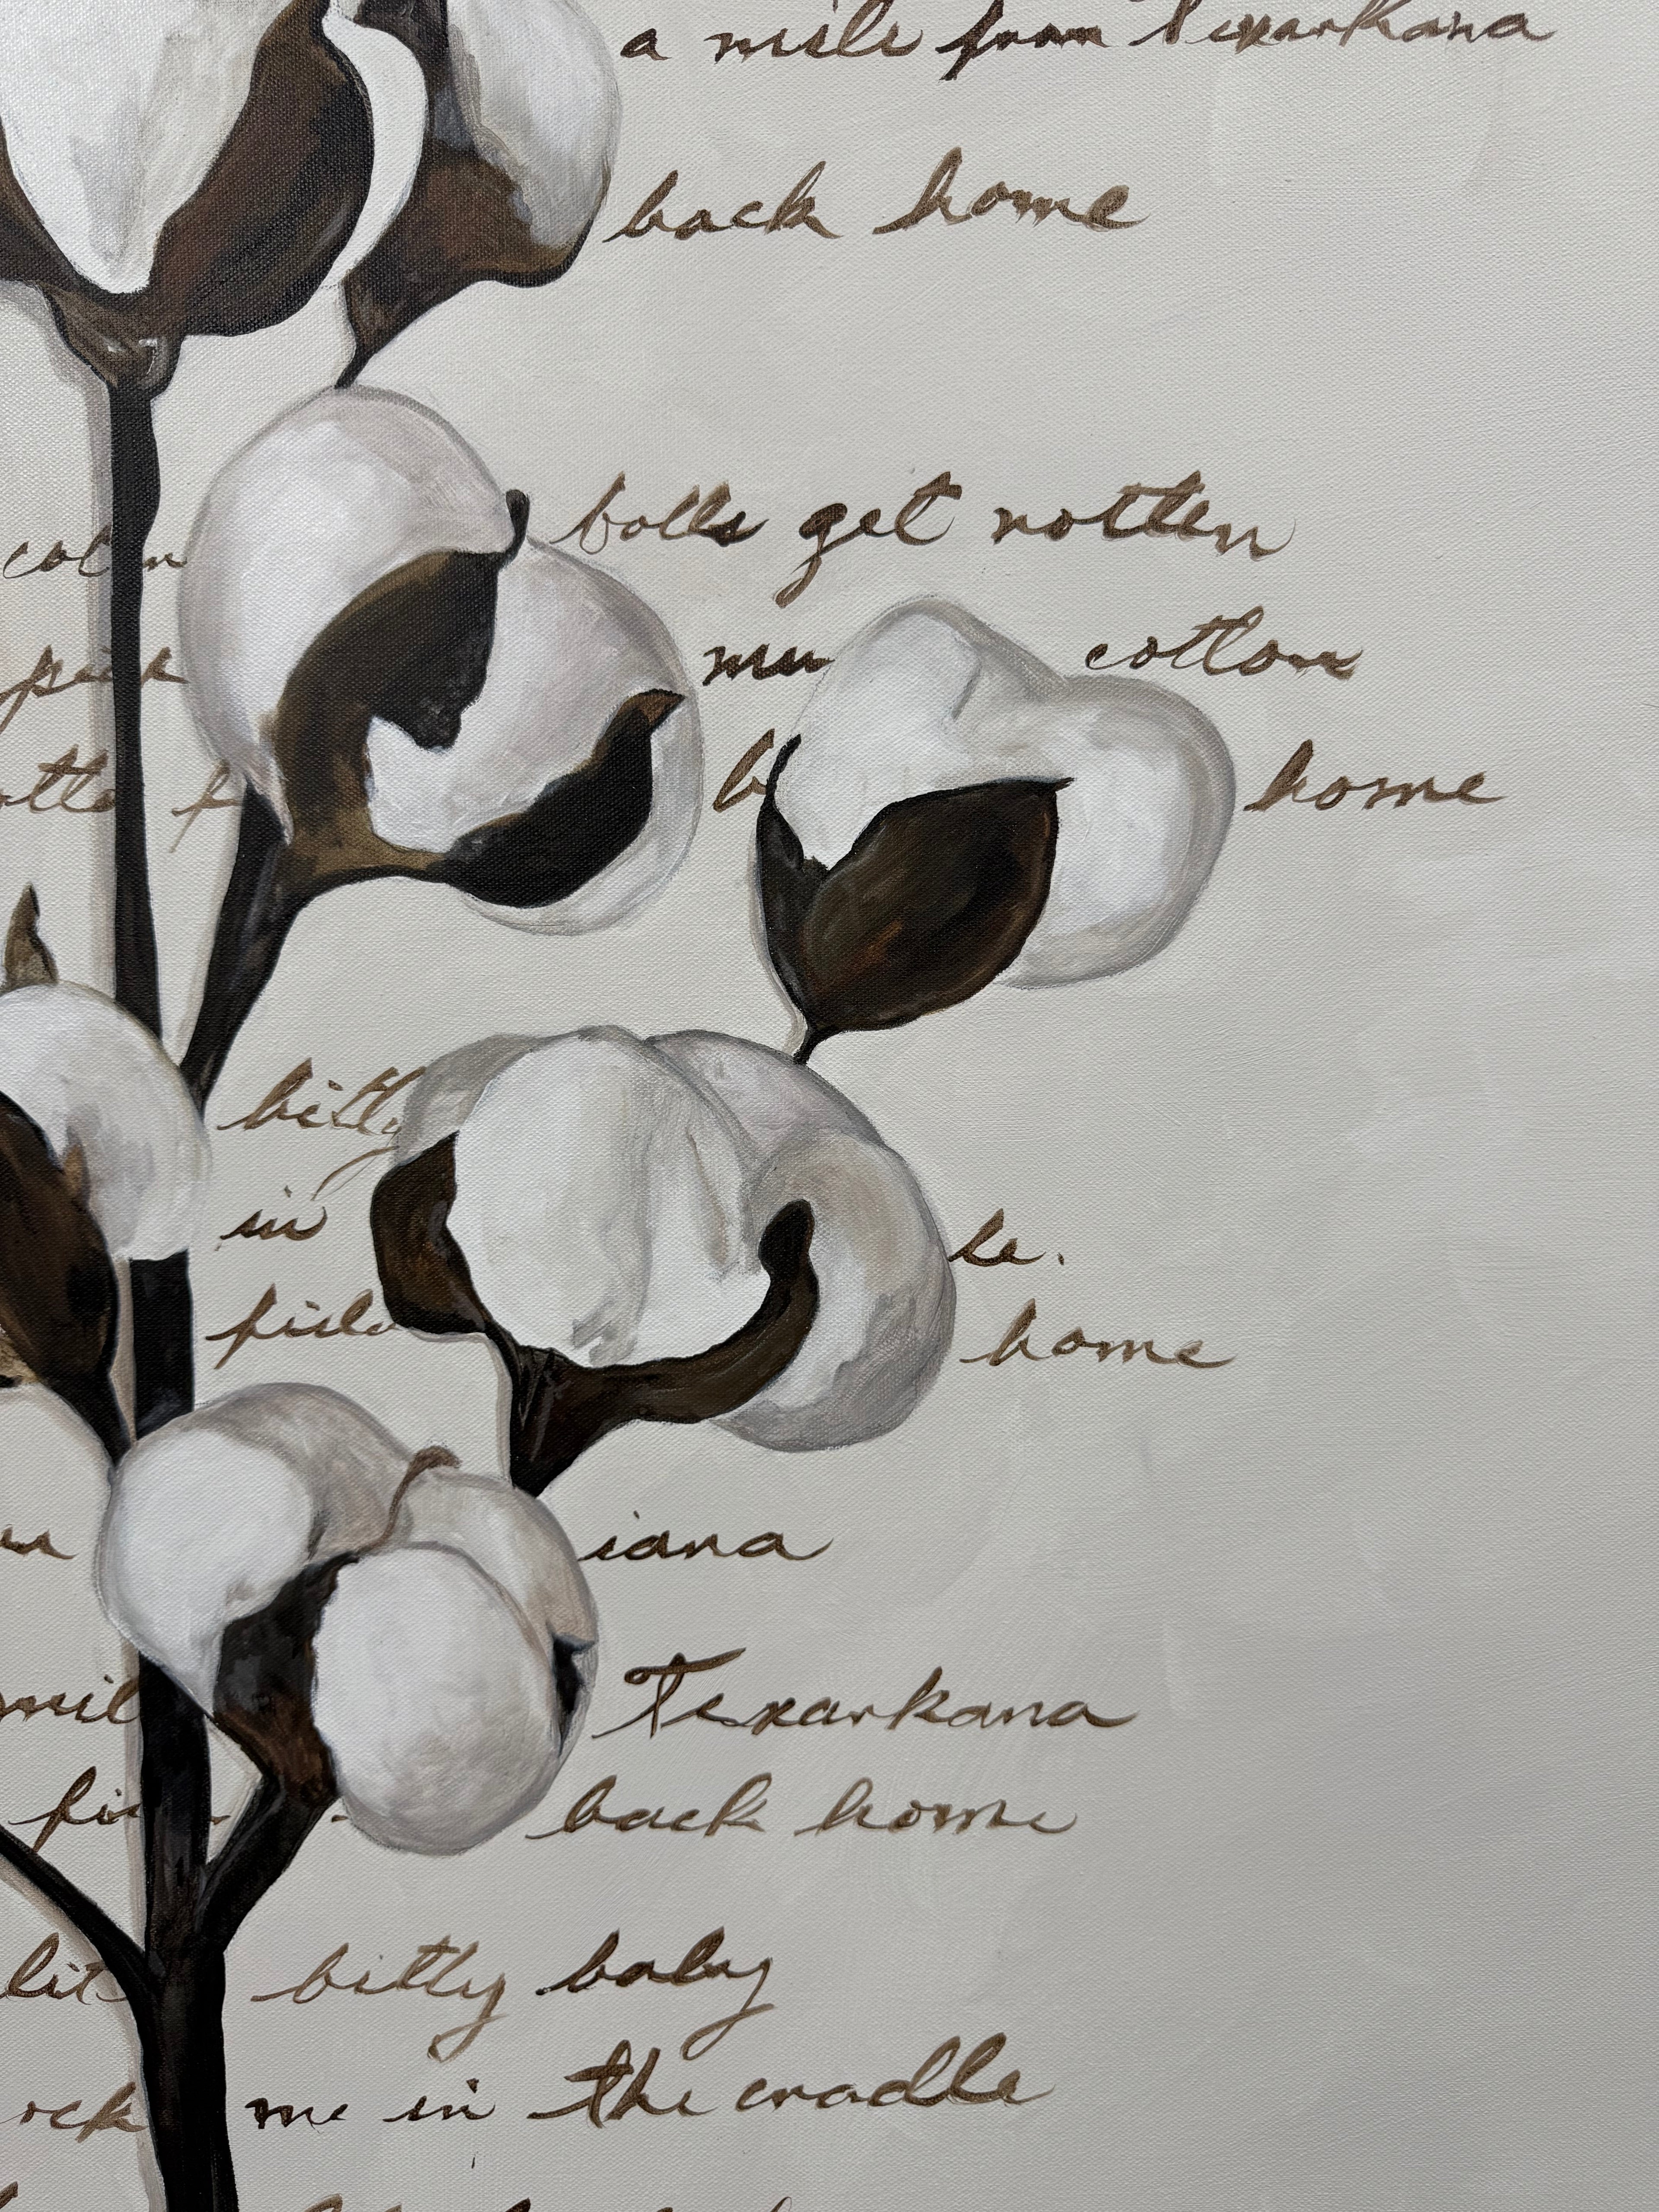 a mile from Texarkana
back home
bolls get rotten
pick cotton
home
bitty
in le.
home
iana
mil Texarkana
back home
lit bitty baby
ock me in the cradle